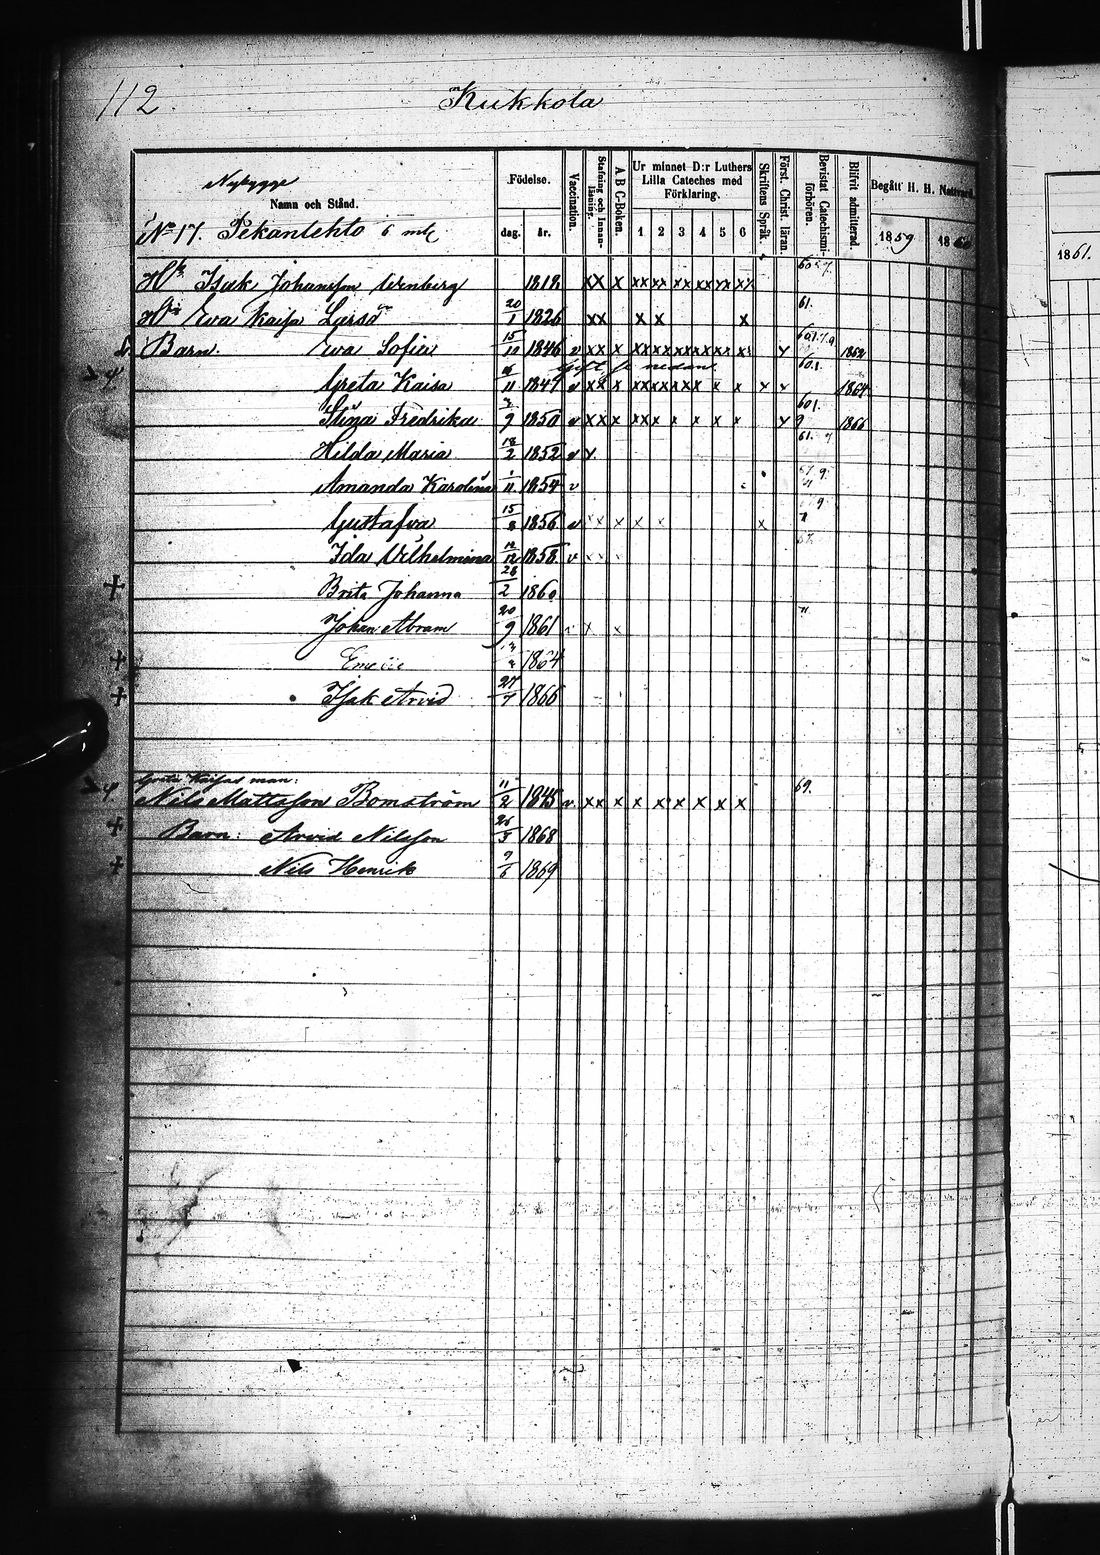 112.
Kukkola
Nybygge
Namn och Stånd.
Födelse.
dag. år.
Vaccination.
Stafning och Innanläsning.
A B C-Boken.
Ur minnet D:r Luthers
Lilla Cateches med
Förklaring.
1 2 3 4 5 6
Skriftens Språk.
Först. Christ. läran.
Bevistat Catechismiförhören.
Blifvit admitterad.
Begått H. H. Nattvard.
1859 1860
1861.
No 17. Pekanlehto 6 mtl
Isak Johansson 1818 xx x xx xx xx xx xx xx
Eva Kaisa Larsd 20/1 1826 xx x x x 61.
Barn. Eva Sofia 15/10 1846 v xx x xx xx xx xx xx x 1862
Gift se nedan
Greta Kaisa 11 1847 v xx x xx xx xx x x x x x 60.1. 1864
Stina Fredrika 3/9 1850 v xx x xx x x x x x 601. 1866
Hilda Maria 18/2 1852 v x 61. 7
Amanda Karolina 1/11 1854 v
Gustafva 15/8 1856 v xx x x x x
Ida Wilhelmina 12/12 1858 v xx x 67.
+ Brita Johanna 28/2 1860
Johan Abram 20/9 1861 x x
+ 1864
+ Isak Arvid 27/7 1866
Greta Kaisas man:
Nils Mattsson Bomström 11/2 1845 v xx x x x x x x x 69.
+ Barn: Arvid Nilsson 26/3 1868
+ Nils Henrik 9/6 1869